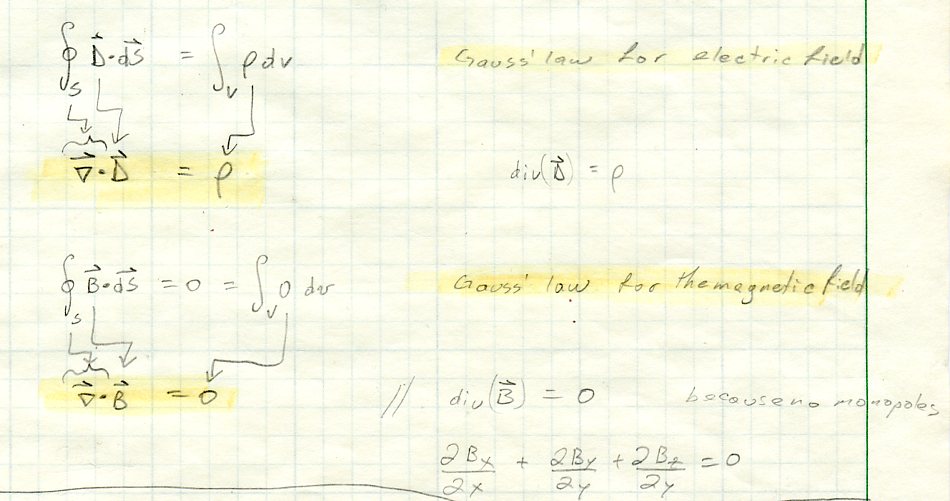 ∮_S D⃗·dS⃗ = ∫_v ρ dv Gauss' law for electric field
∇⃗·D⃗ = ρ div(D⃗) = ρ
∮_S B⃗·dS⃗ = 0 = ∫_v 0 dv Gauss' law for the magnetic field
∇⃗·B⃗ = 0 // div(B⃗) = 0 because no monopoles
∂Bx/∂x + ∂By/∂y + ∂Bz/∂y = 0